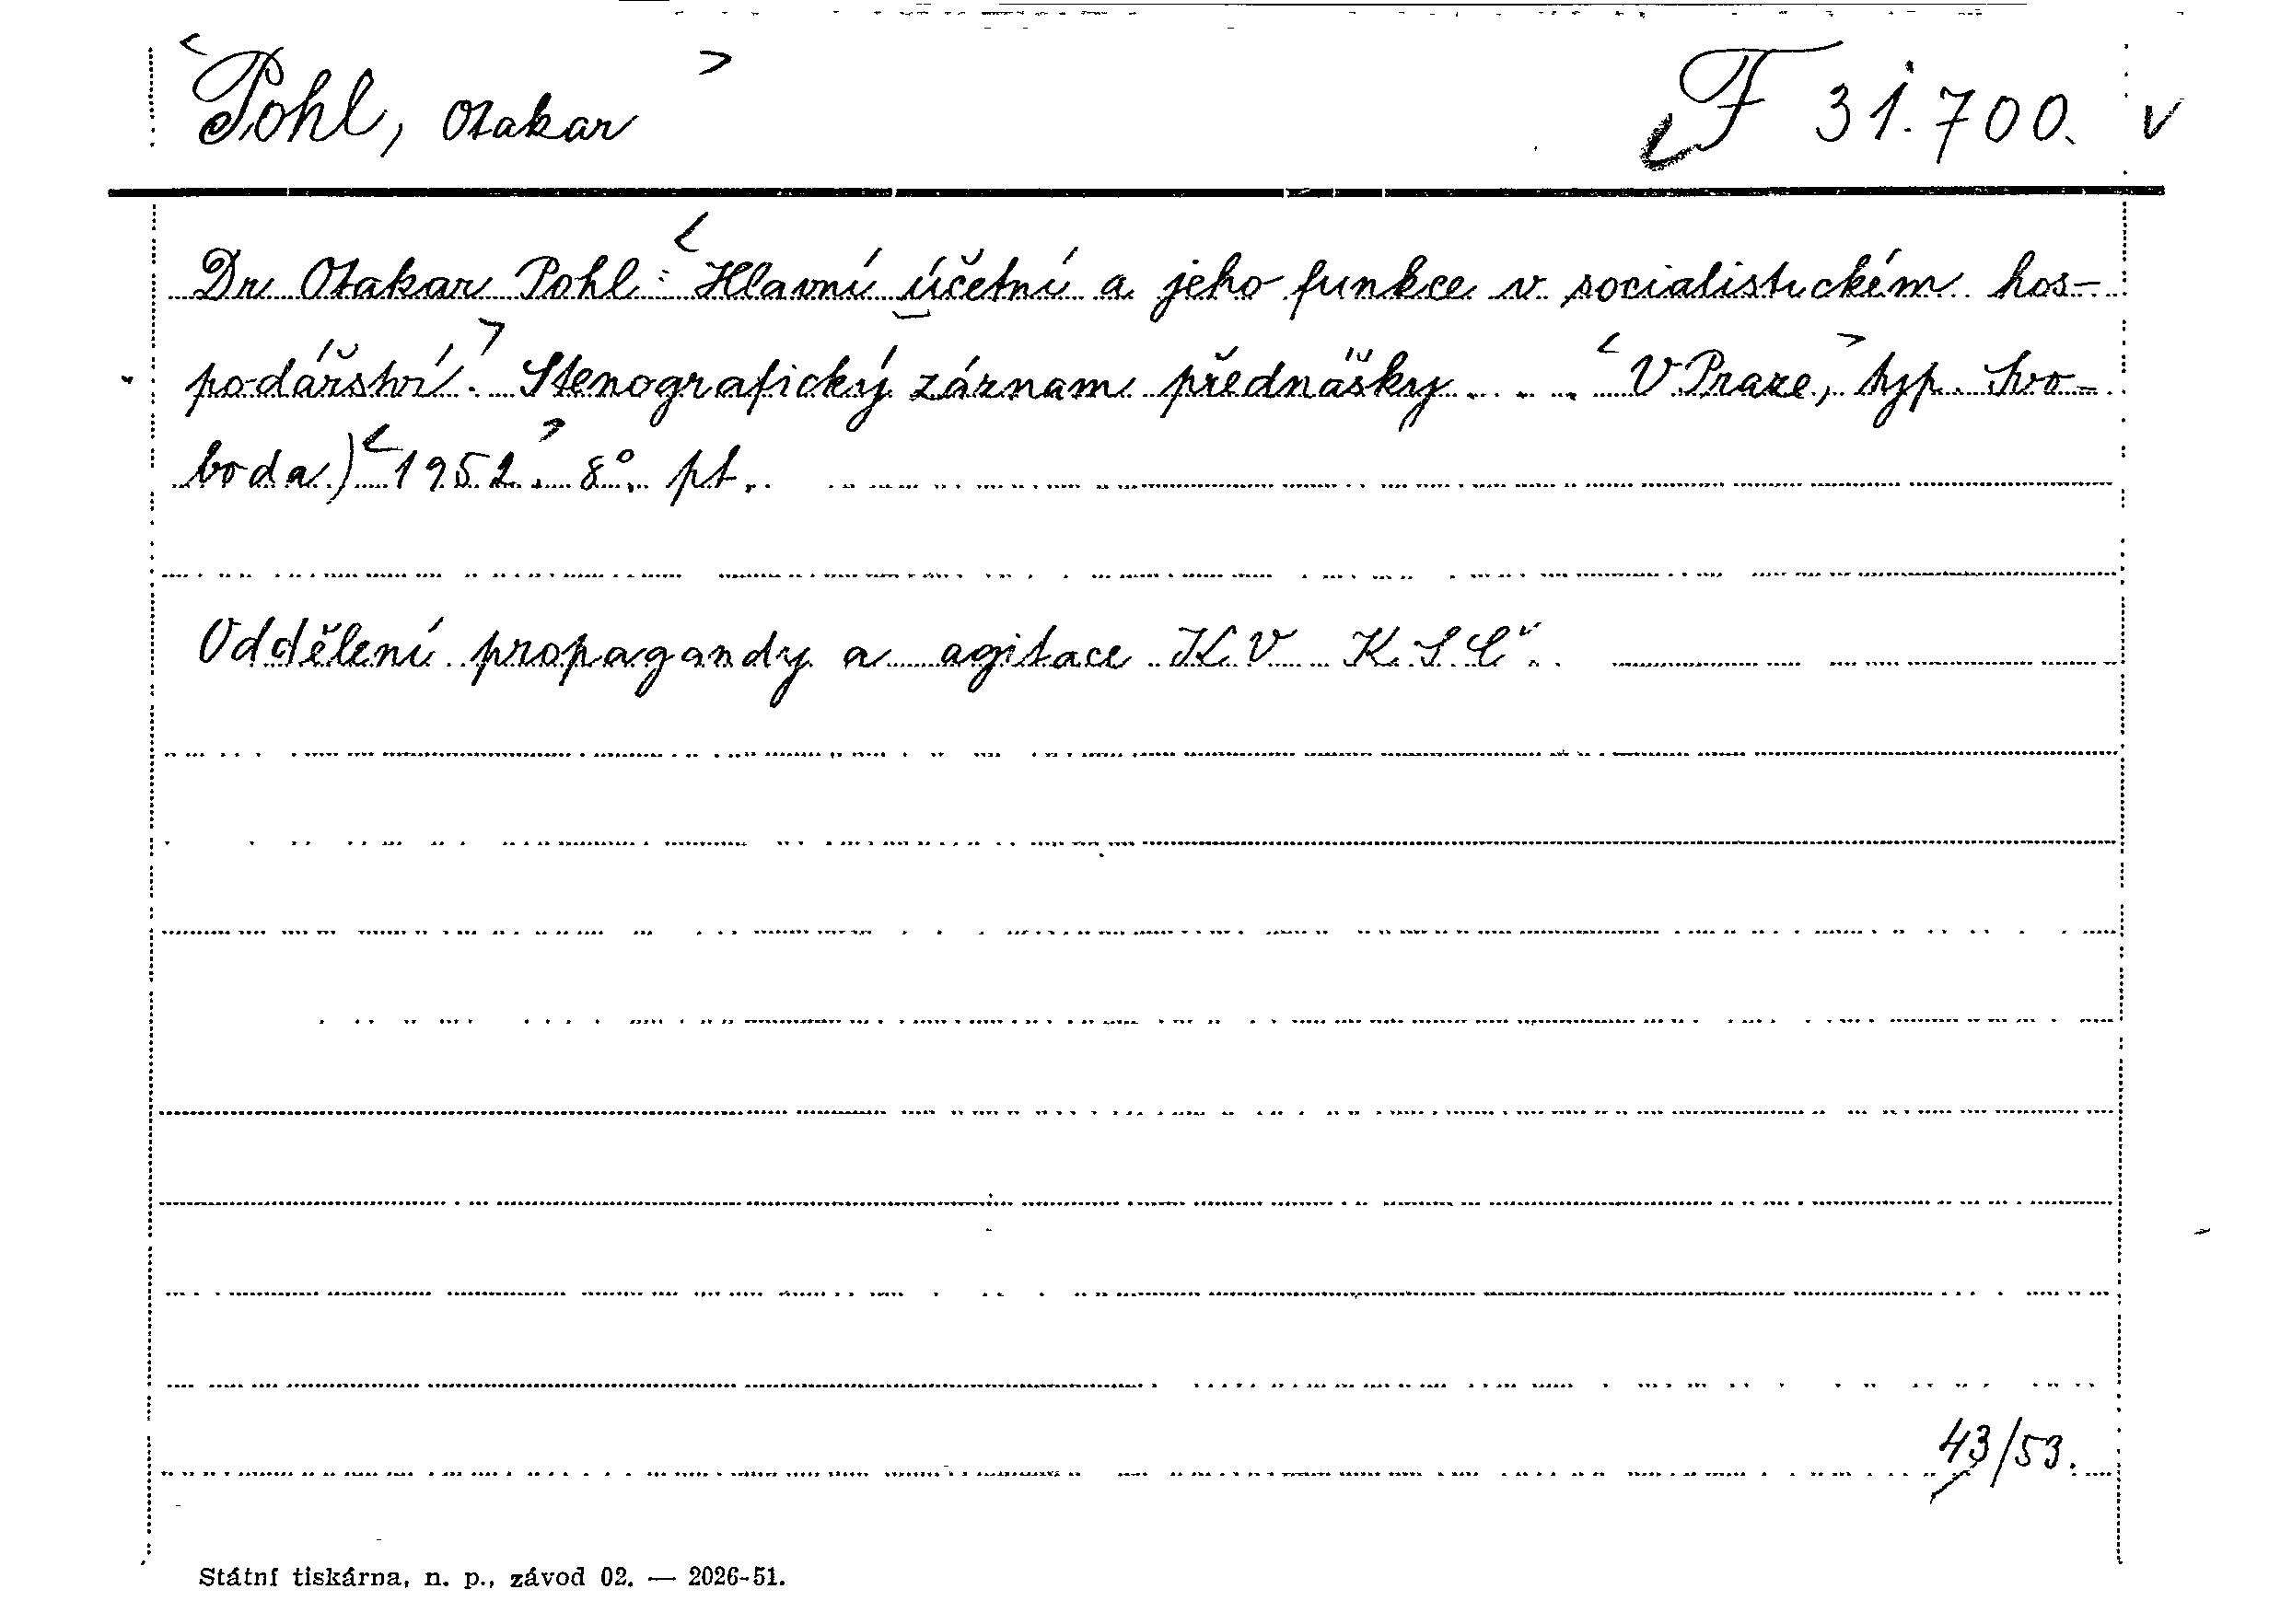 <Pohl, Otakar> F 31.700. v
Dr Otakar Pohl: <Hlavní účetní a jeho funkce v socialistickém hos-
podářství.> Stenografický záznam přednášky . . . <V Praze,> typ. Svo-
boda) <1952.> 8°. pt.
Oddělení propagandy a agitace KV KSČ.
43/53.
Státní tiskárna, n. p., závod 02. — 2026-51.